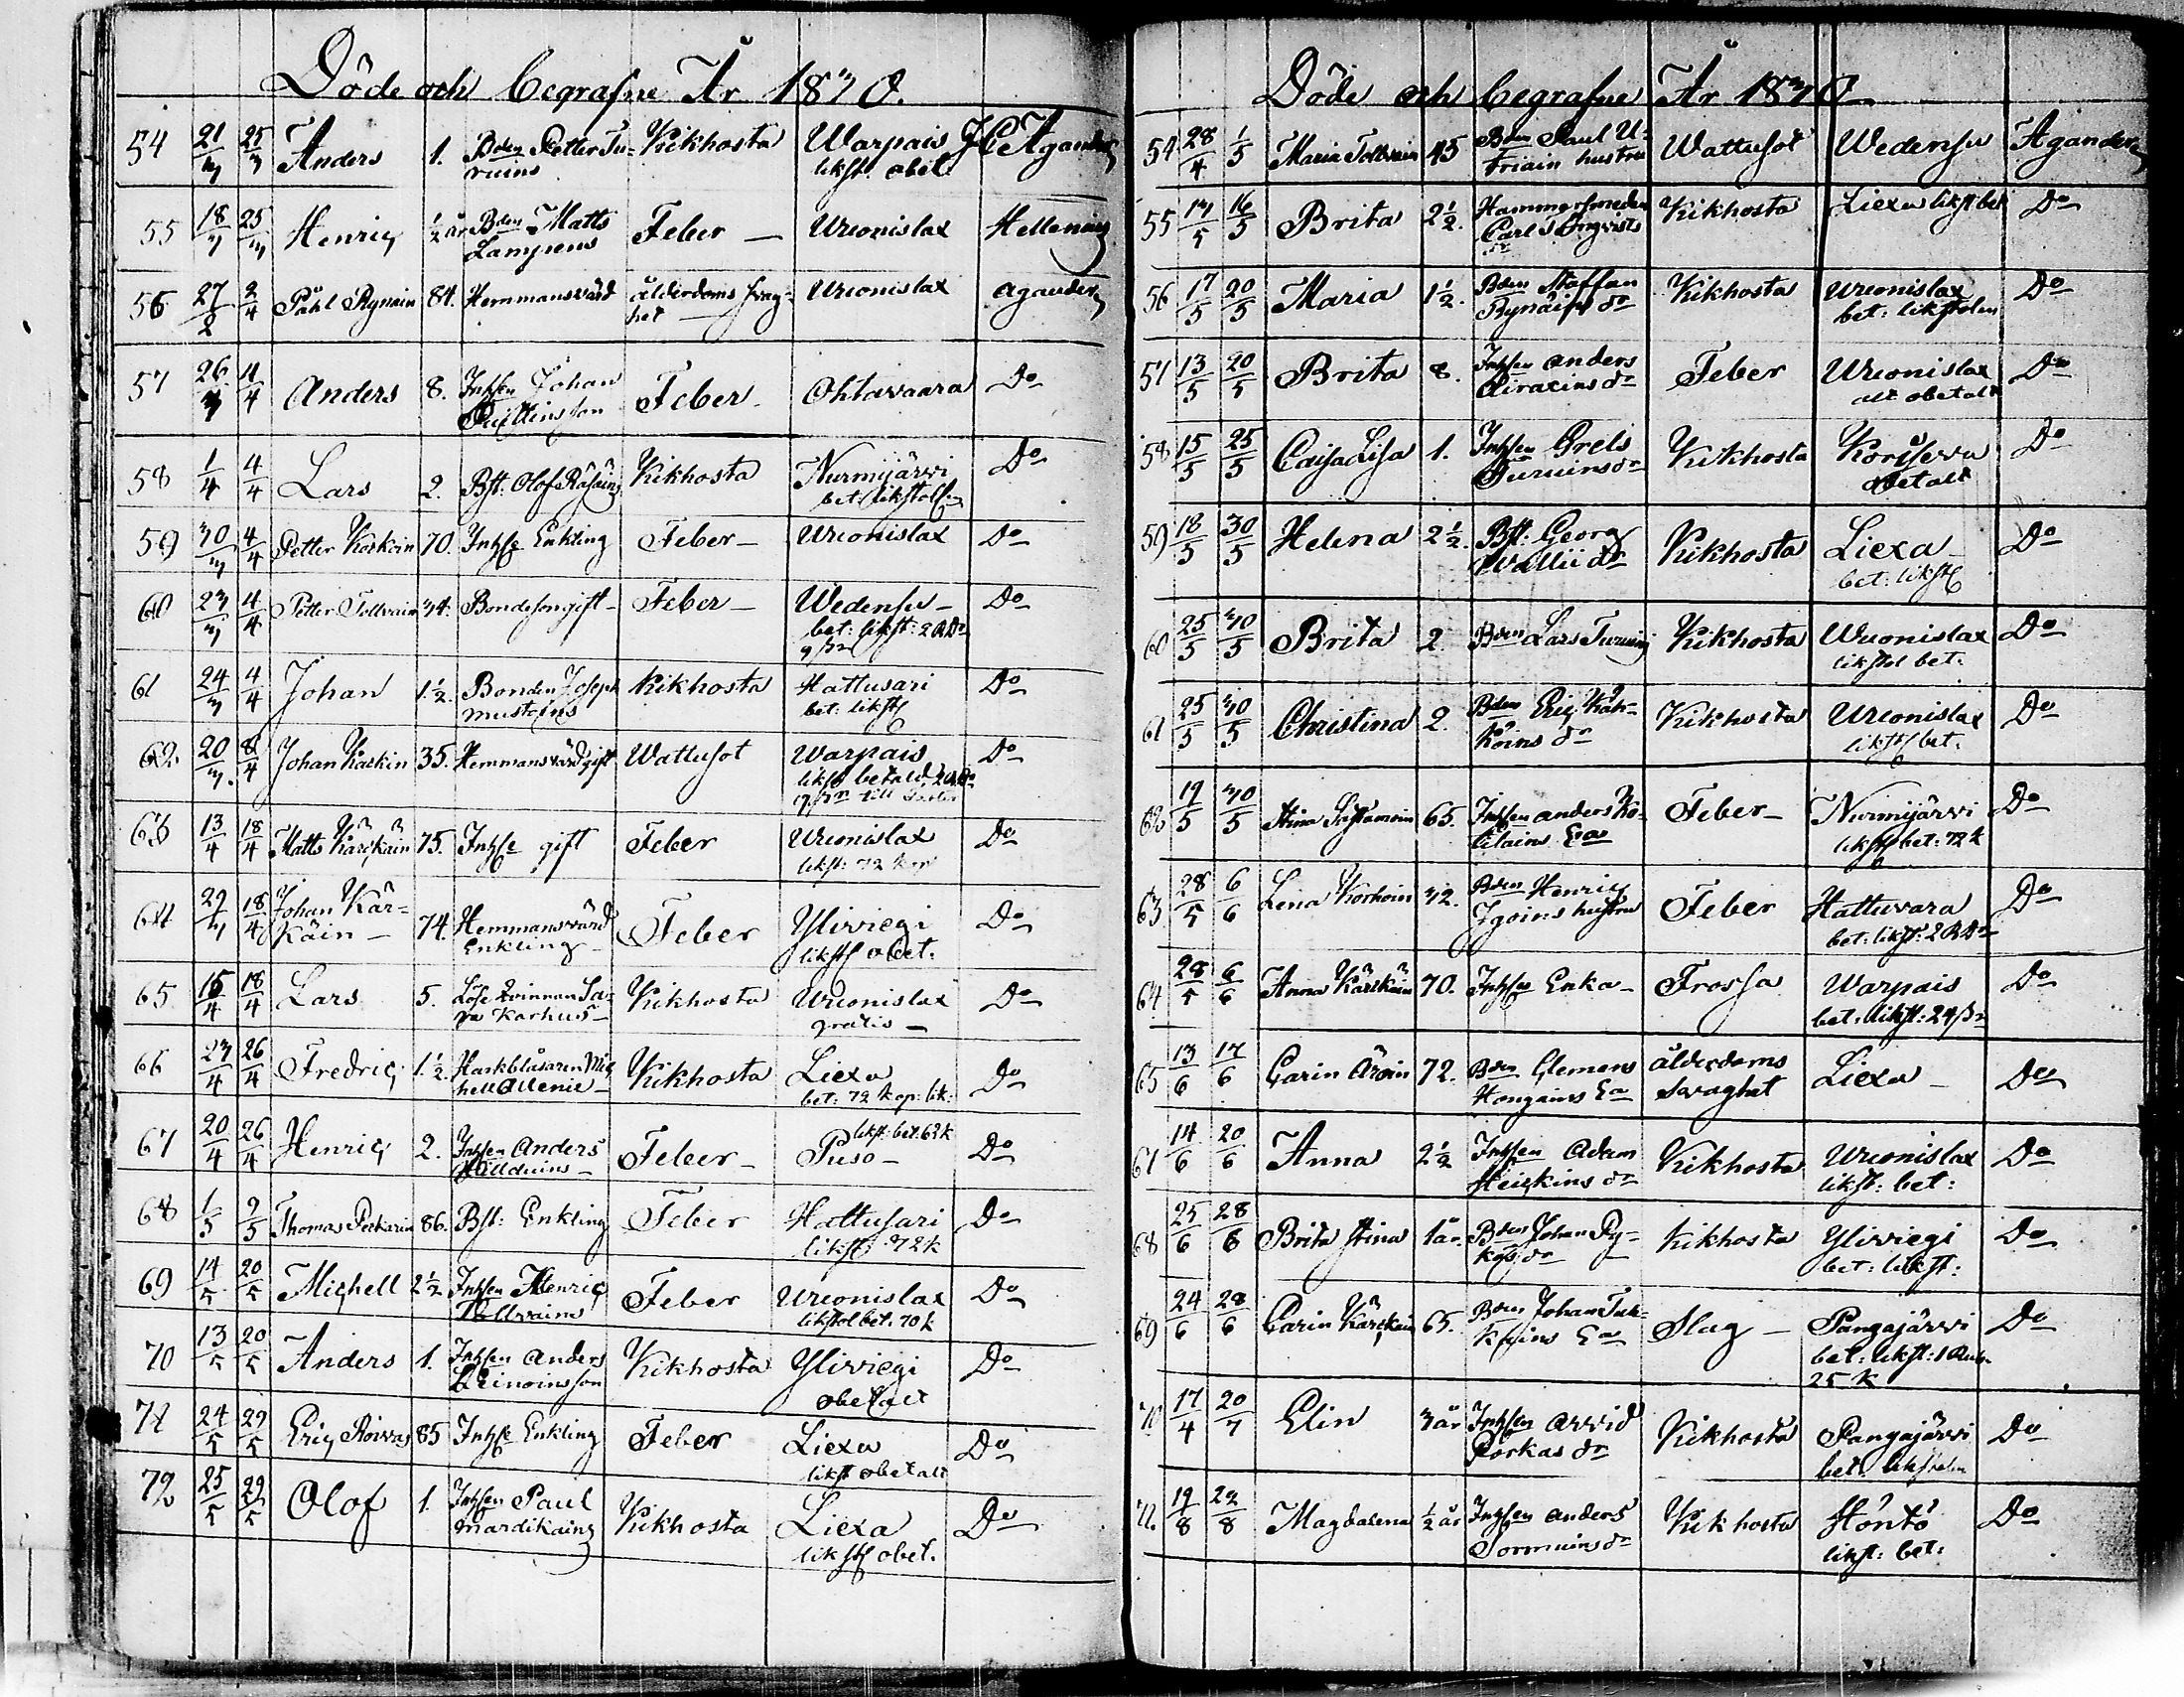 Döde och begrafne År 1830.
54 21/3 25/3 Anders 1. Bden Petter Tu- Kikhosta Warpais JC Agander
ruins likst. obet.
55 18/3 25/3 Henric ½ år Bden Matts Feber — Uronislax Hellenius
Lampens
56 27/2 2/4 Påhl Rynäin 84. Hemmansvärd ålderdoms svag- Uronislax Agander
het —
57 26/3 4/4 Anders 8. Inhsen Johan Feber Ohtavaara Do
son
58 1/4 4/4 Lars 2. Bst. Olof Räsäins Kikhosta Nurmijärvi Do
bet likstol
59 30/3 4/4 Petter Korkoin 70. Inhse Enkling Feber — Uronislax Do
60 23/3 4/4 Petter Tollvain 34. Bondeson gift — Feber — Wedensu — Do
bet: likst: 2 RDr
61 24/3 4/4 Johan 1½. Bonden Joseph Kikhosta Hattusari Do
Mustoins bet: likst
62 20/3 8/4 Johan Karkin 35. Hemmansvärd gift Wattusot Warpais Do
likst betald 2 RDr
63 13/4 18/4 Matts Kärkäin 75. Inhse gift Feber Uronislax Do
likst: 72 kop
64 29/3 18/4 Johan Kär- 74. Hemmansvärd Feber Yliviegi Do
käin — Enkling likst obet.
65 15/4 18/4 Lars 5. Löse Qvinnan Sa- Kikhosta Uronislax Do
ra Karhus — gratis —
66 23/4 26/4 Fredric 1½. Harkblåsaren Mic Kikhosta Liexa Do
hell Allenii — bet: 72 kop: lik:
67 20/4 26/4 Henric 2. Inhsen Anders Feber — likst: bet. 62 k
Puso — Do
68 1/5 9/5 Thomas Peckarin 86. Bst: Enkling Feber Hattusari Do
likst: 72 k
69 14/5 20/5 Michell 2½ Inhsen Henric Feber Uronislax Do
Tollvains likstol bet. 70 k
70 13/5 20/5 Anders 1. Inhsen Anders Kikhosta Yliviegi Do
Leinoins son obetalt
71 24/5 29/5 Eric Roivas 85 Inhse Enkling Feber Liexa Do
likst obetalt
72 25/5 29/5 Olof 1. Inhsen Paul Kikhosta Liexa Do
Mardikains likst obet.
Döde och begrafne År 1830
54 28/4 1/5 Maria Tollvain 45 Bden Paul U- Wattusot Wedensu Agander
triain hustru
55 13/5 16/5 Brita 2½. Hammarsmeden Kikhosta Liexa likst bet Do
Carl
dr
56 17/5 20/5 Maria 1½. Bden Staffan Kikhosta Uronislax Do
Rynäins dr bet: likstolen
57 13/5 20/5 Brita 8. Inhsen Anders Feber Uronislax Do
Airaxins dr alt obetalt
58 15/5 25/5 Caisa Lisa 1. Inhsen Grels Kikhosta Koriseva Do
Turuins dr obetalt
59 18/5 30/5 Helena 2½. Bst: Georg Kikhosta Liexa Do
Wallii dr bet: likst
60 25/5 30/5 Brita 2. Bden Lars Turuins Kikhosta Wuonislax Do
likstol bet:
61 25/5 30/5 Christina 2. Bden Eric Kär- Kikhosta Uronislax Do
köins dr likst bet.
62 19/5 30/5 Stina 65. Inhsen Anders Ko- Feber — Nurmijärvi Do
lilains Ea likst bet: 72 k
63 28/5 6/6 Lena Korhoin 32. Bden Henric Feber Hattuvara Do
Igoins hustru bet: likst: 2 RDr
64 28/5 6/6 Anna Kärkäin 70. Inhses Enka — Frossa Warpais Do
bet. likst: 24
65 13/6 17/6 Carin Äröin 72. Bden Clemens ålderdoms Liexa — Do
Hongains Ea Svaghet
67 14/6 20/6 Anna 2½ Inhsen Adam Kikhosta Uronislax Do
Heickins dr likst: bet:
68 25/6 28/6 Brita Stina 1 år. Bden Johan Py- Kikhosta Yliviegi Do
kös dr bet: likst:
69 24/6 28/6 Carin Kärckäin 65. Bden Johan Slag — Pangajärvi Do
Ea bet: likst: 1 Rub.
25 k
70 17/4 20/7 Elin 3 år Inhsen Arvid Kikhosta Pangajärvi Do
Porkas dr bet. likstolen
72. 19/8 22/8 Magdalena ½ år Inhsen Anders Kikhosta Höntö Do
Sormuins dr likst: bet: